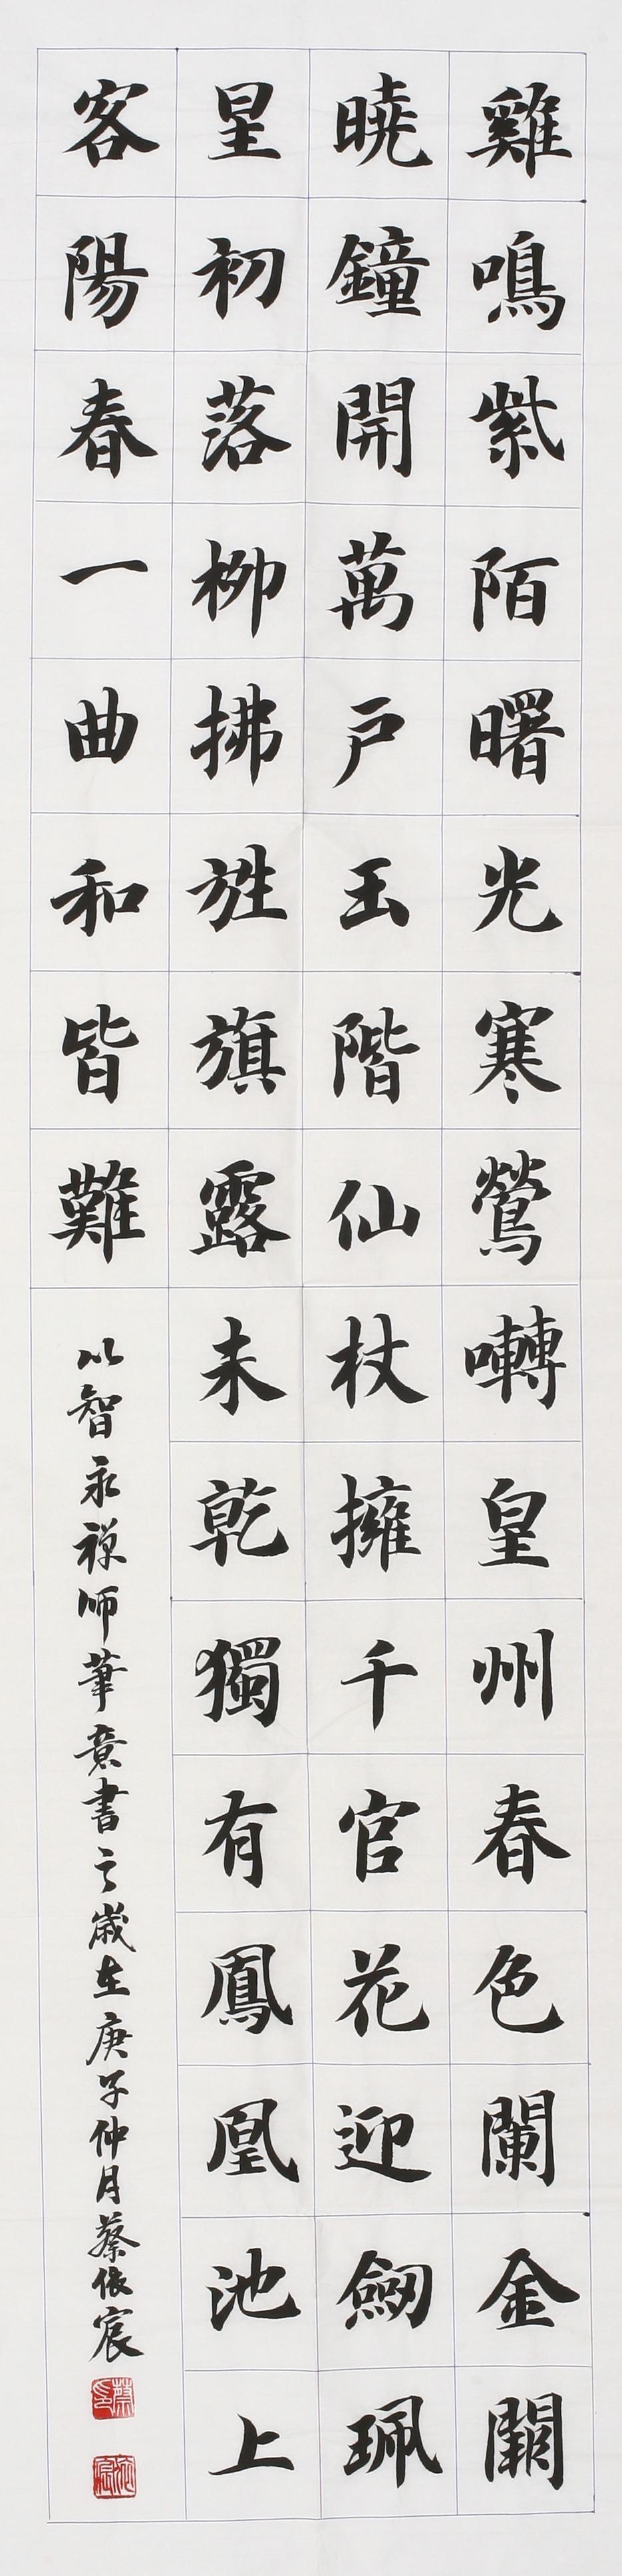 雞鳴紫陌曙光寒鶯囀皇州春色闌金闕
曉鐘開萬戶玉階仙杖擁千官花迎劒珮
星初落柳拂旌旗露未乾獨有鳳凰池上
客陽春一曲和皆難
以智永禅师筆意書之歲在庚子仲月蔡依宸